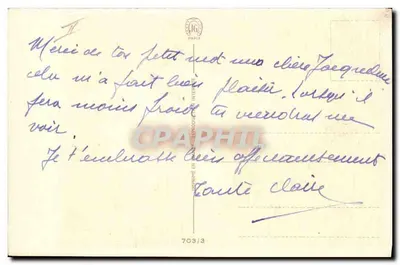 Merci de ton petit mot ma chère Jacqueline
cela m'a fait bien plaisir. Lorsqu'il
fera moins froid tu viendras me
voir.
Je t'embrasse bien affectueusement
tante Claire
CPAPHIL
703/3